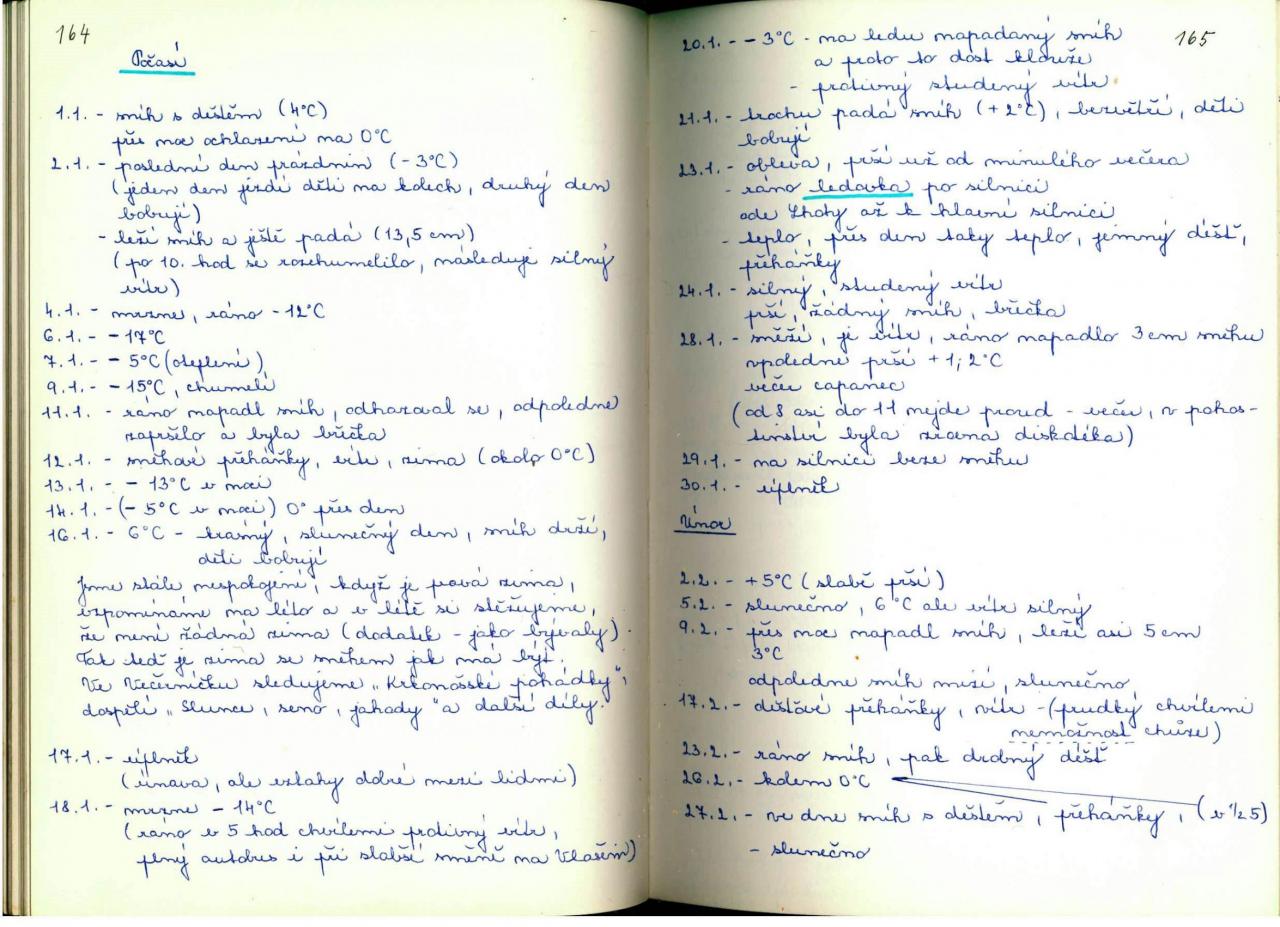 164
Počasí
1.1. - sníh s deštěm (4°C)
přes noc ochlazení na 0°C
2.1. - poslední den prázdnin (-3°C)
(jeden den jezdí děti na kolech, druhý den
bobují)
- leží sníh a ještě padá (13,5 cm)
(po 10. hod se rozchumelilo, následuje silný
vítr)
4.1. - mrzne, ráno -12°C
6.1. - -17°C
7.1. - -5°C (oteplení)
9.1. - -15°C, chumelí
11.1. - ráno napadl sníh, odhazoval se, odpoledne
zapršelo a byla břečka
12.1. - sněhové přeháňky, vítr, zima (okolo 0°C)
13.1. - -13°C v noci
14.1. - (-5°C v noci) 0° přes den
16.1. - 6°C - krásný, slunečný den, sníh drží,
děti bobují
Jsme stále nespokojení, když je pravá zima,
vzpomínáme na léto a v létě si stěžujeme,
že není žádná zima (dodatek - jako bývaly).
Tak teď je zima se sněhem jak má být.
Ve Večerníčku sledujeme „Krkonošské pohádky",
dospělí „Slunce, seno, jahody" a další díly.
17.1. - úplněk
(únava, ale vztahy dobré mezi lidmi)
18.1. - mrzne -14°C
(ráno v 5 hod chvílemi protivný vítr,
plný autobus i při slabší směně na Vlašim)
165
20.1. - -3°C - na ledu napadaný sníh
a proto to dost klouže
- protivný studený vítr
21.1. - trochu padá sníh (+2°C), bezvětří, děti
bobují
23.1. - obleva, prší už od minulého večera
- ráno ledovka po silnici
ode Lhoty až k hlavní silnici
- teplo, přes den taky teplo, jemný déšť,
přeháňky
24.1. - silný, studený vítr
prší, žádný sníh, břečka
28.1. - sněží, je vítr, ráno napadlo 3 cm sněhu
vpoledne prší +1; 2°C
večer capanec
(od 8 asi do 11 nejde proud - večer, v pohos-
tinství byla zrovna diskotéka)
29.1. - na silnici beze sněhu
30.1. - úplněk
Únor
2.2. - +5°C (slabě prší)
5.2. - slunečno, 6°C ale vítr silný
9.2. - přes noc napadl sníh, leží asi 5 cm
3°C
odpoledne sníh mizí, slunečno
17.2. - dešťové přeháňky, vítr - (prudký chvílemi
nemožnost chůze)
23.2. - ráno sníh, pak drobný déšť
26.2. - kolem 0°C
27.2. - ve dne sníh s deštěm, přeháňky, (v 1/2 5)
- slunečno